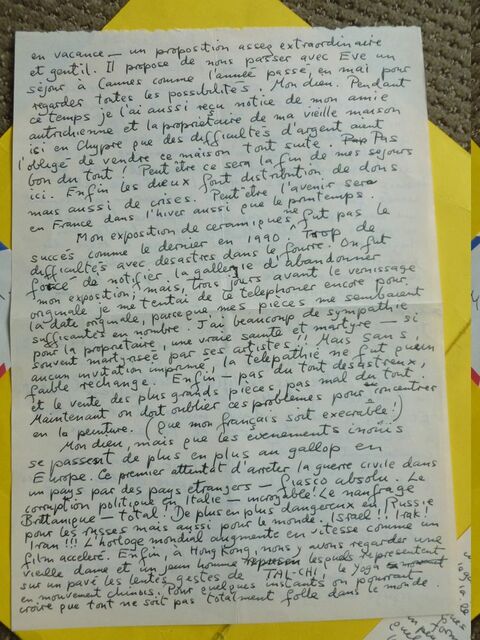 en vacance — un proposition assez extraordinaire
et gentil. Il propose de nous passer avec Eve un
séjour à Cannes comme l'année passé, en mai pour
regarder toutes les possibilités. Mon dieu. Pendant
ce temps je l'ai aussi reçu notice de mon amie
autrichienne et la propriétaire de ma vieille maison
isi en Chypre que des difficultés d'argent aient
l'obligé de vendre ce maison tout suite. Pas
bon du tout! Peut être ce sera la fin de mes sejours
ici. Enfin les dieux font distribution de dons
mais aussi de crises. Peut être l'avenir sera
en France dans l'hiver aussi que le printemps.
Mon exposition de ceramiques ne fut pas le
succés comme le dernier en 1990. Trop de
difficultés avec desastres dans le fourre. On fut
forcé de notifier la gallerie d'abandonner
mon exposition; mais, trois jours avant le vernissage
originale je me tentai de le telephoner encore pour
la date originale, parceque mes pièces me semblaient
suffisantes en nombre. J'ai beaucoup de sympathie
pour la propriétaire, une vraie sainte et martyre — si
souvent martyrisée par ses artistes!! Mais sans
aucun invitation imprimé, la telepathie ne fut qu'un
faible rechange. Enfin — pas du tout desastreux,
et le vente des plus grands pièces, pas mal du tout.
Maintenant on doit oublier ces problèmes pour se concentrer
en la peinture. (Que mon français soit execrable!)
Mon dieu, mais que les evenements inouïs
se passent de plus en plus au gallop en
Europe. Ce premier attentat d'arrêter la guerre civile dans
un pays par des pays etrangers — fiasco absolu. Le
corruption politique en Italie — incroyable! Le naufrage
Britannique — total! De plus en plus dangereux en Russie
pour les russes mais aussi pour le monde. Israel!! Irak!
Iran!!! L'horloge mondial augmente en vitesse comme un
film acceleré. Enfin, à Hong Kong, nous avons regarder une
vieille dame et un jeun homme lesquels representent
sur un pavé les lentes gestes de TAI-CHI, le yoga
en mouvement chinois. Pour quelques instants on pourrait
croire que tout ne soit pas totalment folle dans le monde.